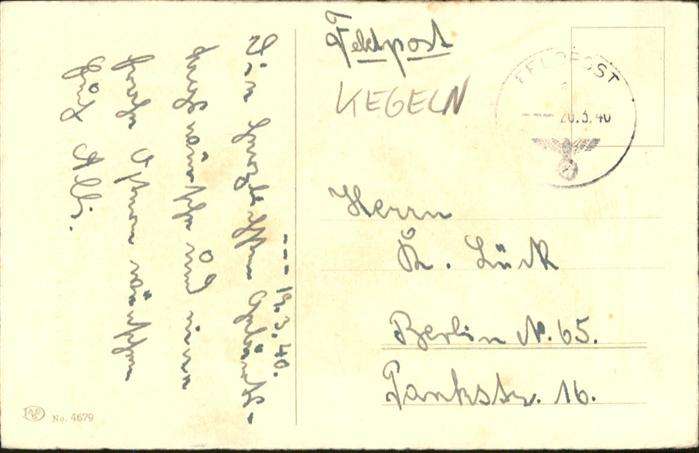 Feldpost
KEGELN
FELDPOST
--- 20.3.40
Herrn
K. Lück
Berlin N. 65.
Pankstr. 16.
--- 19.3.40.
Die herzlichsten Geburts-
tagswünsche und
frohe Ostern
No. 4679